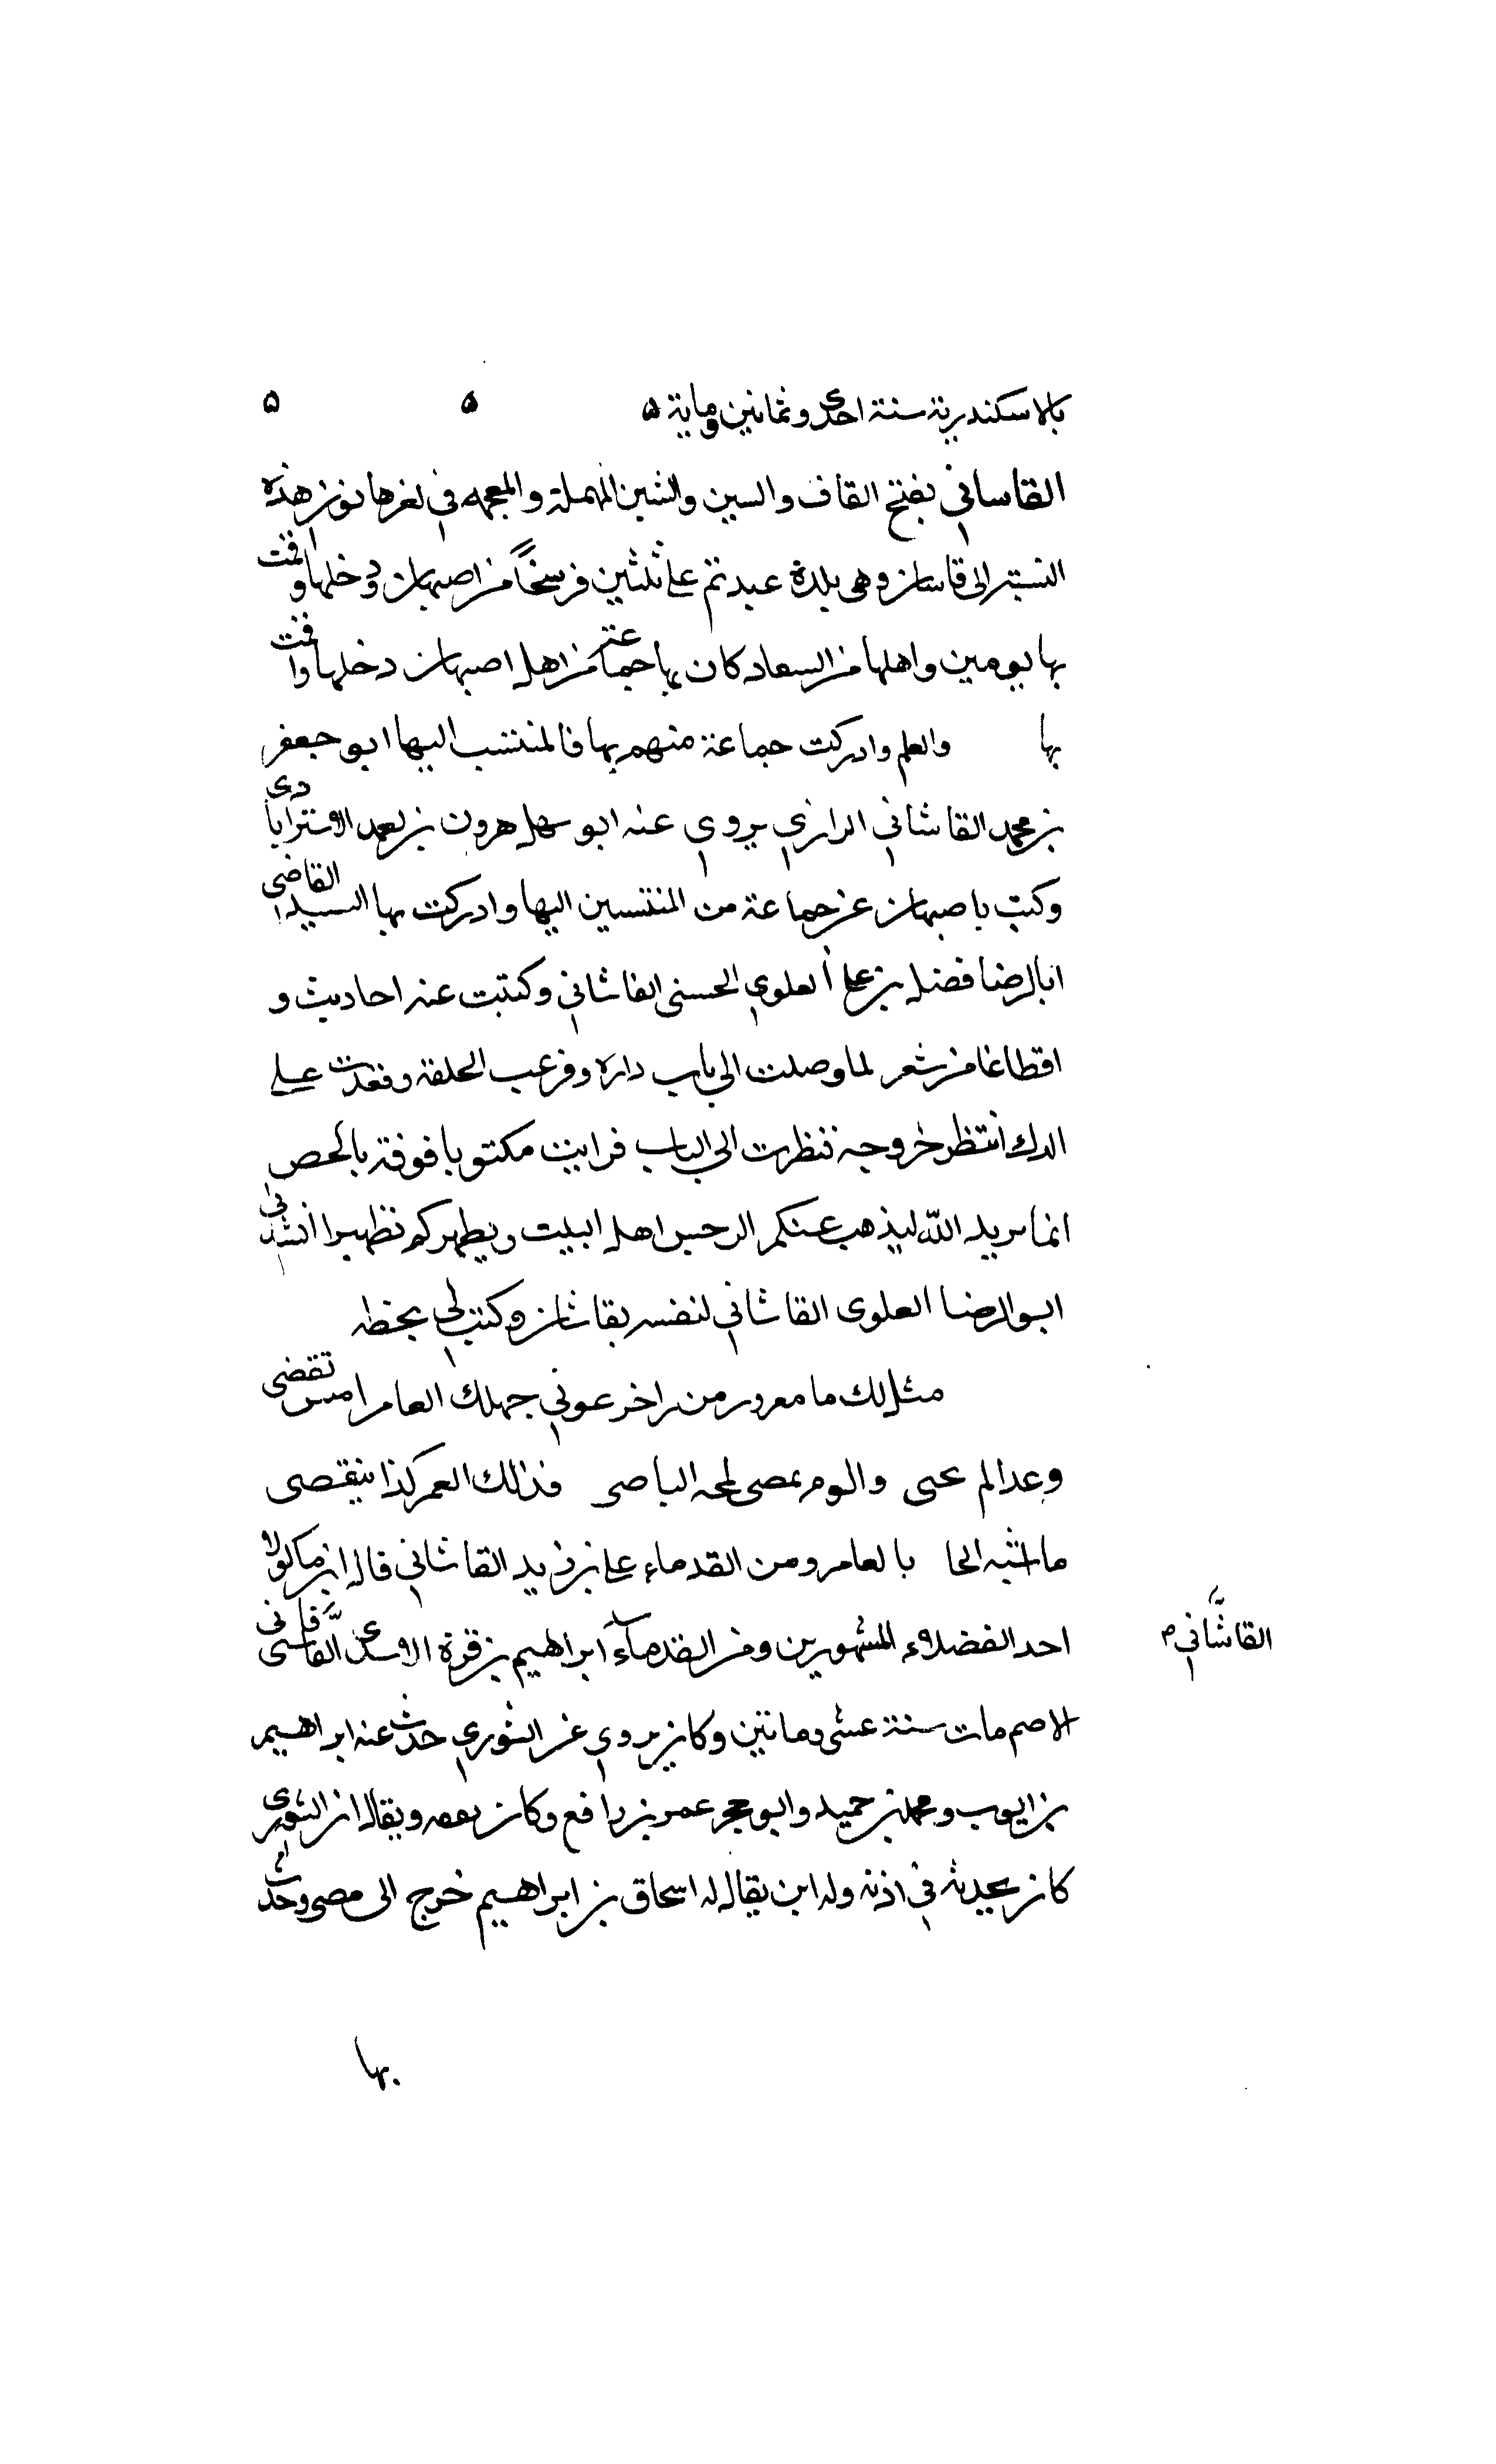 بالاسكندرية سنة احدى وثمانين وماية ۵ ۵ ۵
القاساني بفتح القاف والسين والشين المهملة والمعجمة في اخرها نون هذه
النسبة الى قاسان وهى بلدة عند قم على ثلثين فرسخاً من اصبهان دخلها واقمت
بها يومين واهلها من كان بها جماعة من اهل اصبهان دخلها واقمت
بها والعلم وادركت جماعة منهم بها فالمنتسب اليها ابو جعفر
بن محمد القاشاني الرازي يروي عنه ابو سهل هرون بن احمد الاسترابادى
وكتبت باصبهان عن جماعة من المنتسبين اليها وادركت بها السيد القاضى
ابا الرضا فضل بن على العلوي الحسنى القاشاني وكتبت عنه احاديث و
اقطاعا من شعر لما وصلت الى باب داره وقرعت الحلقة وقعدت على
الدك انتظر خروجه فنظرت الى الباب فرايت مكتوبا فوقه بالجص
انما يريد الله ليذهب عنكم الرجس اهل البيت ويطهركم تطهيرا انشدني
ابو الرضا العلوى القاشاني لنفسه بقاشان وكتب لي بخطه
هل لك يا مغرور من زاجر فترعوي جهلك العامر امس تقضى
وغدا لم والوم يمضى لمحه الباصر فذلك العمر كذا ينقضى
ما اشبه بالعامر ومن القدماء على بن زيد القاشاني قال ابن ماكولا
القاشاني احد الفضلاء المشهورين ومن القدماء ابراهيم بن قرة الاسدى القاساني
الاصم مات سنة عشر ومائتين وكان يروي عن الثوري حدث عنه ابراهيم
بن ايوب ومحمد بن حميد وابو حجر عمرو بن رافع وكان ويقال ان الثورى
كان يحدثه في اذنه وله ابن يقال له اسحاق بن ابراهيم خرج الى مصر وحدث
بها